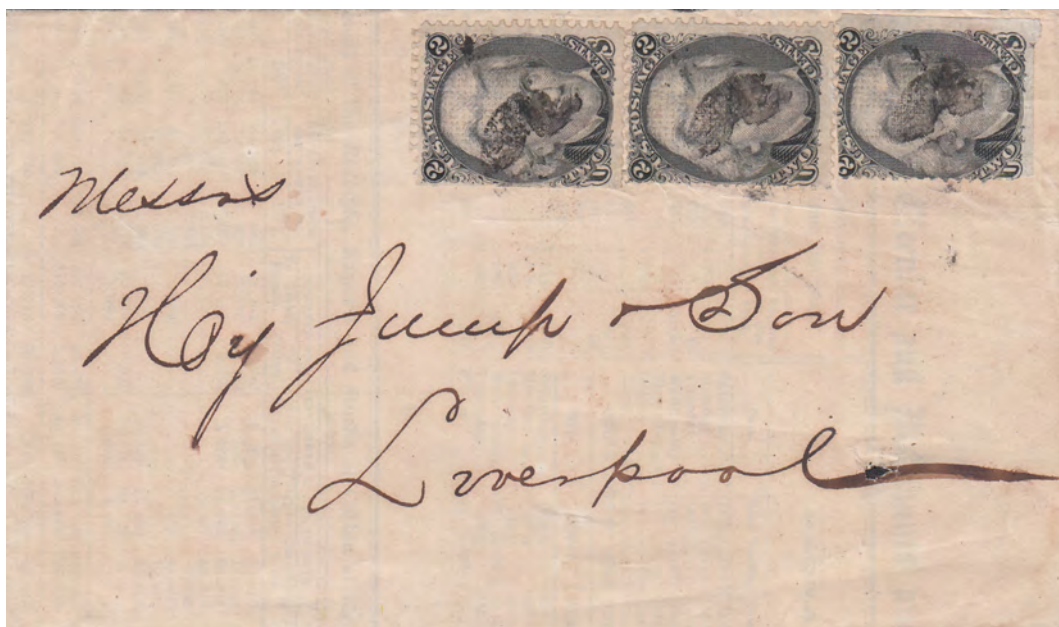 U.S. POSTAGE
TWO CENTS
2 2
U.S. POSTAGE
TWO CENTS
2 2
U.S. POSTAGE
TWO CENTS
2 2
Messrs
Hy Jump & Son
Liverpool